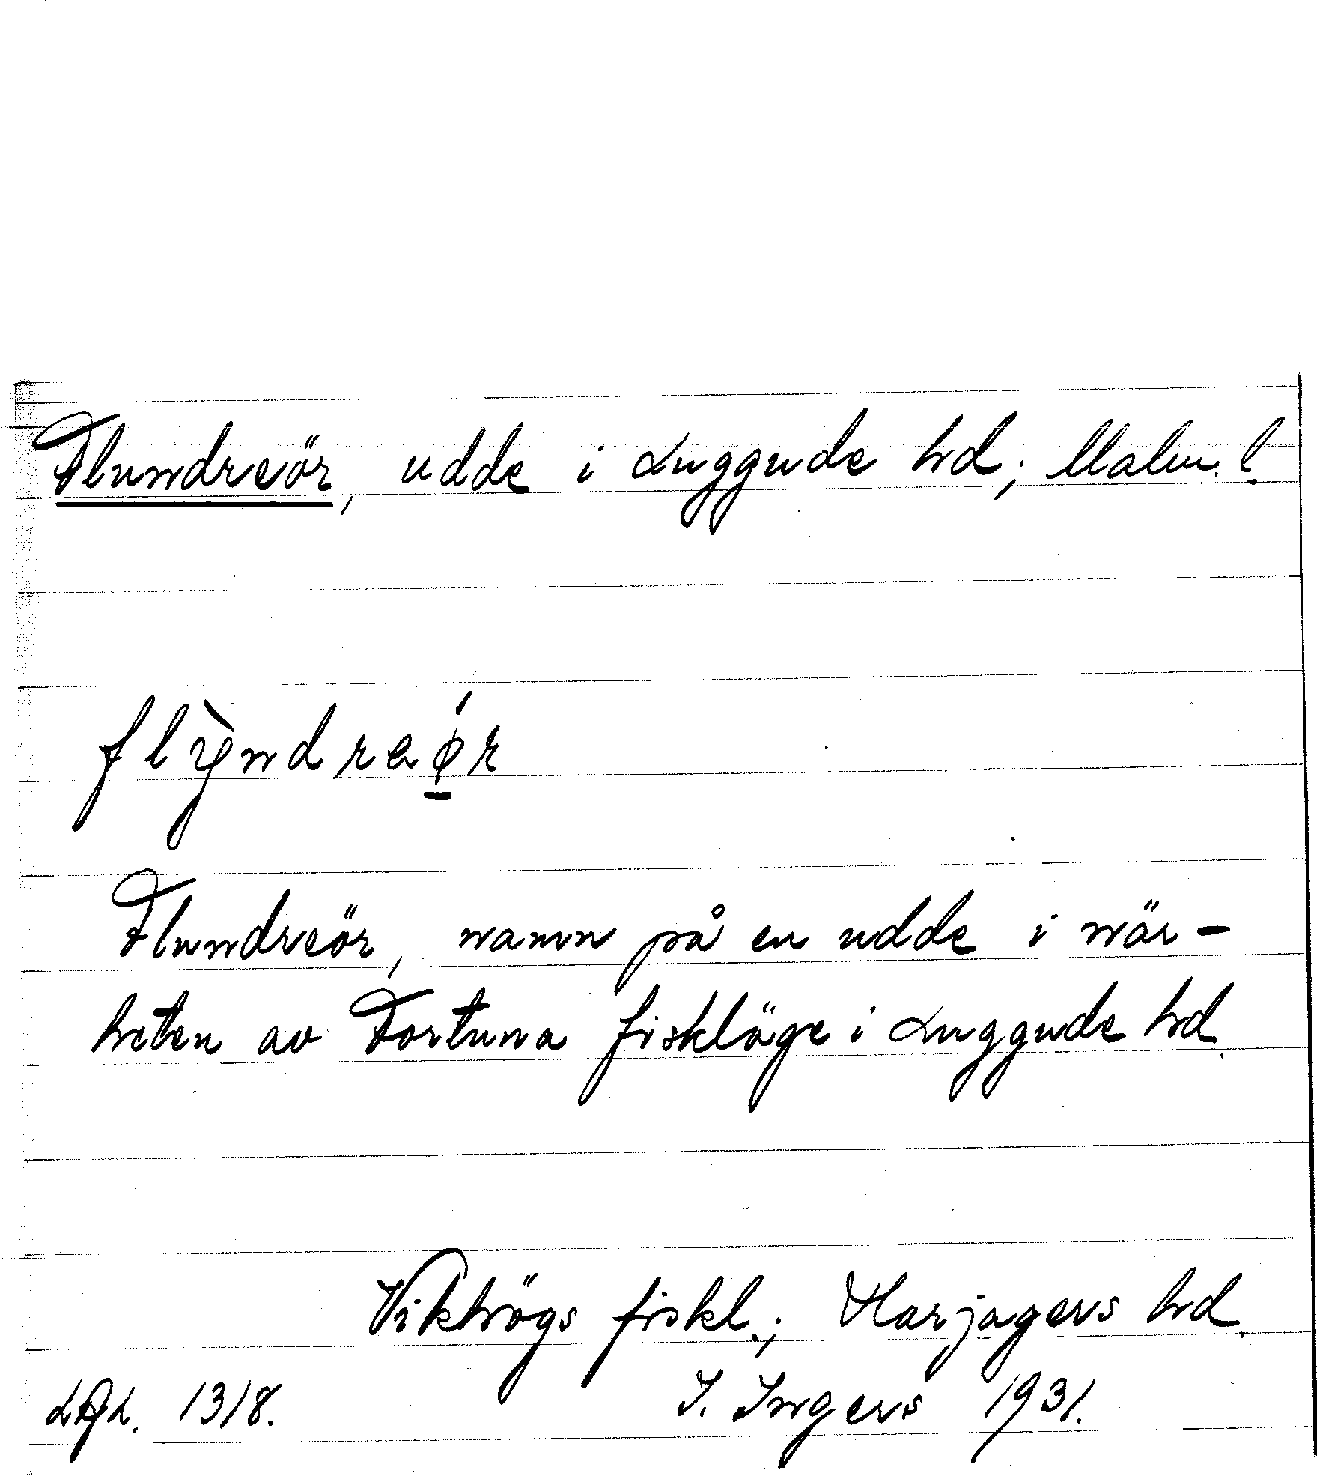 Flundreör, udde i Luggude hd; Malm. l.
flỳndreǿr
Flundreör, namn på en udde i när-
heten av Fortuna fiskläge i Luggude hd.
Vikhögs fiskl.; Harjagers hd.
1318. I. Ingers 1931.